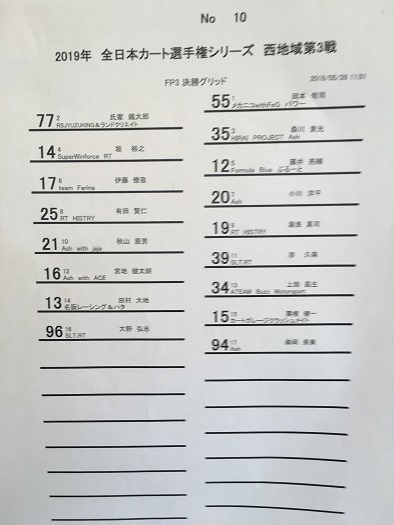 No 10
2019年 全日本カート選手権シリーズ 西地域第3戦
FP3 決勝グリッド
55 1
メカニコwithFeG パワー
77 2 氏家 颯太郎
RSJYUZUKING&ランドクリエイト
35 3 森川 貴光
HIRAI PROJECT Ash
14 4 堀 裕之
SuperWinforce RT
12 5 藤井 亮輔
Formula Blue ぶるーと
17 6 伊藤
team Farina
20 7 小川
Ash
25 8 有田 賢仁
RT HISTRY
19 9
RT HISTRY
21 10 秋山
Ash with jaja
39 11 久美
SLT.RT
16 12 宮地 健太朗
Ash with ACE
34 13 上郎
ATEAM Buzz Motorsport
13 14 田村 大地
名阪レーシング&ハタ
15 15 健一
カートガレージクラッシュメイト
96 16 大野 弘志
SLT.RT
94 17
Ash